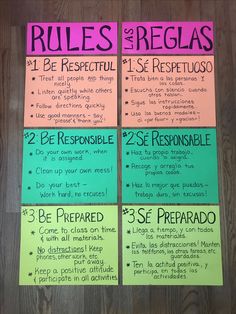 RULES
#1 BE RESPECTFUL
* Treat all people AND things nicely.
* Listen quietly while others are speaking.
* Follow directions quickly
* Use good manners - Say "please & thank you"!
#2 BE RESPONSIBLE
* Do your own work, when it is assigned.
* Clean up your own mess!
* Do your best -
Work hard, no excuses!
#3 BE PREPARED
* Come to class on time & with all materials.
* No distractions! Keep phones, other work, etc put away.
* Keep a positive attitude & participate in all activities.
LAS REGLAS
#1 SÉ RESPETUOSO
* Trata bien a las personas Y las cosas.
* Escucha con silencio cuando otros hablan.
* Sigue las instrucciones rapidamente.
* Usa los buenos modales con el "por favor y ¡gracias!
#2 SÉ RESPONSABLE
* Haz tu propio trabajo, cuando lo asigna.
* Recoge y arregla tus propias cosas.
* Haz lo mejor que puedas-
trabaja duro, sin excusas!
#3 SÉ PREPARADO
* Llega a tiempo, y con todos los materiales.
* Evita las distracciones! Mantén los teléfonos, las otras tareas, etc. guardados.
* Ten la actitud positiva, y participa, en todas las actividades.